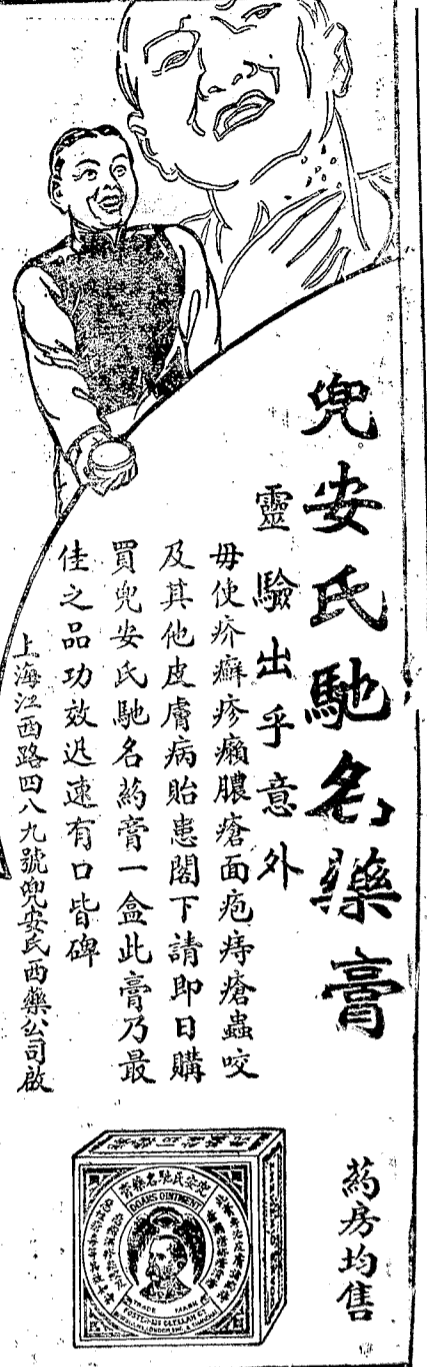 兜安氏馳名藥膏
靈驗出乎意外
毋使疥癬疹癩膿瘡面疱痔瘡蟲咬
及其他皮膚病貽患閣下請即日購
買兜安氏馳名葯膏一盒此膏乃最
佳之品功效迅速有口皆碑
上海江西路四八九號兜安氏西藥公司啟
葯房均售
兜安氏馳名藥膏
DOANS OINTMENT
TRADE MARK
FOSTER-McCLELLAN CO.